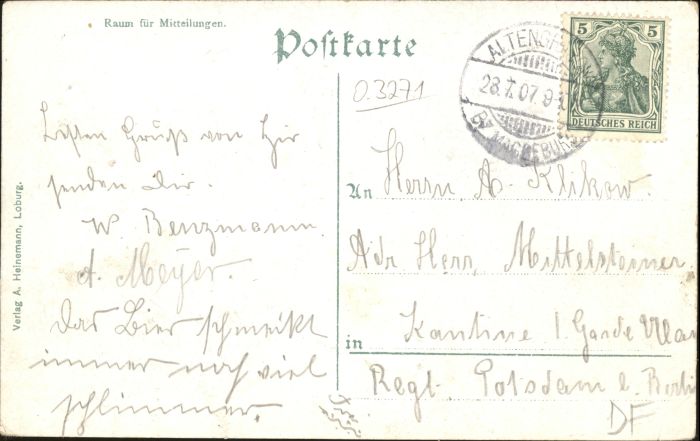 Raum für Mitteilungen.
Postkarte
5 5
DEUTSCHES REICH
28.7.07.9-
B. MAGDEBURG
0.3271
Besten Gruß von hir
senden Dir.
W. Benzmann.
A. Meyer.
Das Bier schmekt
immer noch viel
schlimmer.
Verlag A. Heinemann, Loburg.
An Herrn A. Klikow.
Adr Herr. Mittelsteiner
Kantine 1 Garde Ulan
in
Regt. Potsdam b. Berlin
DF